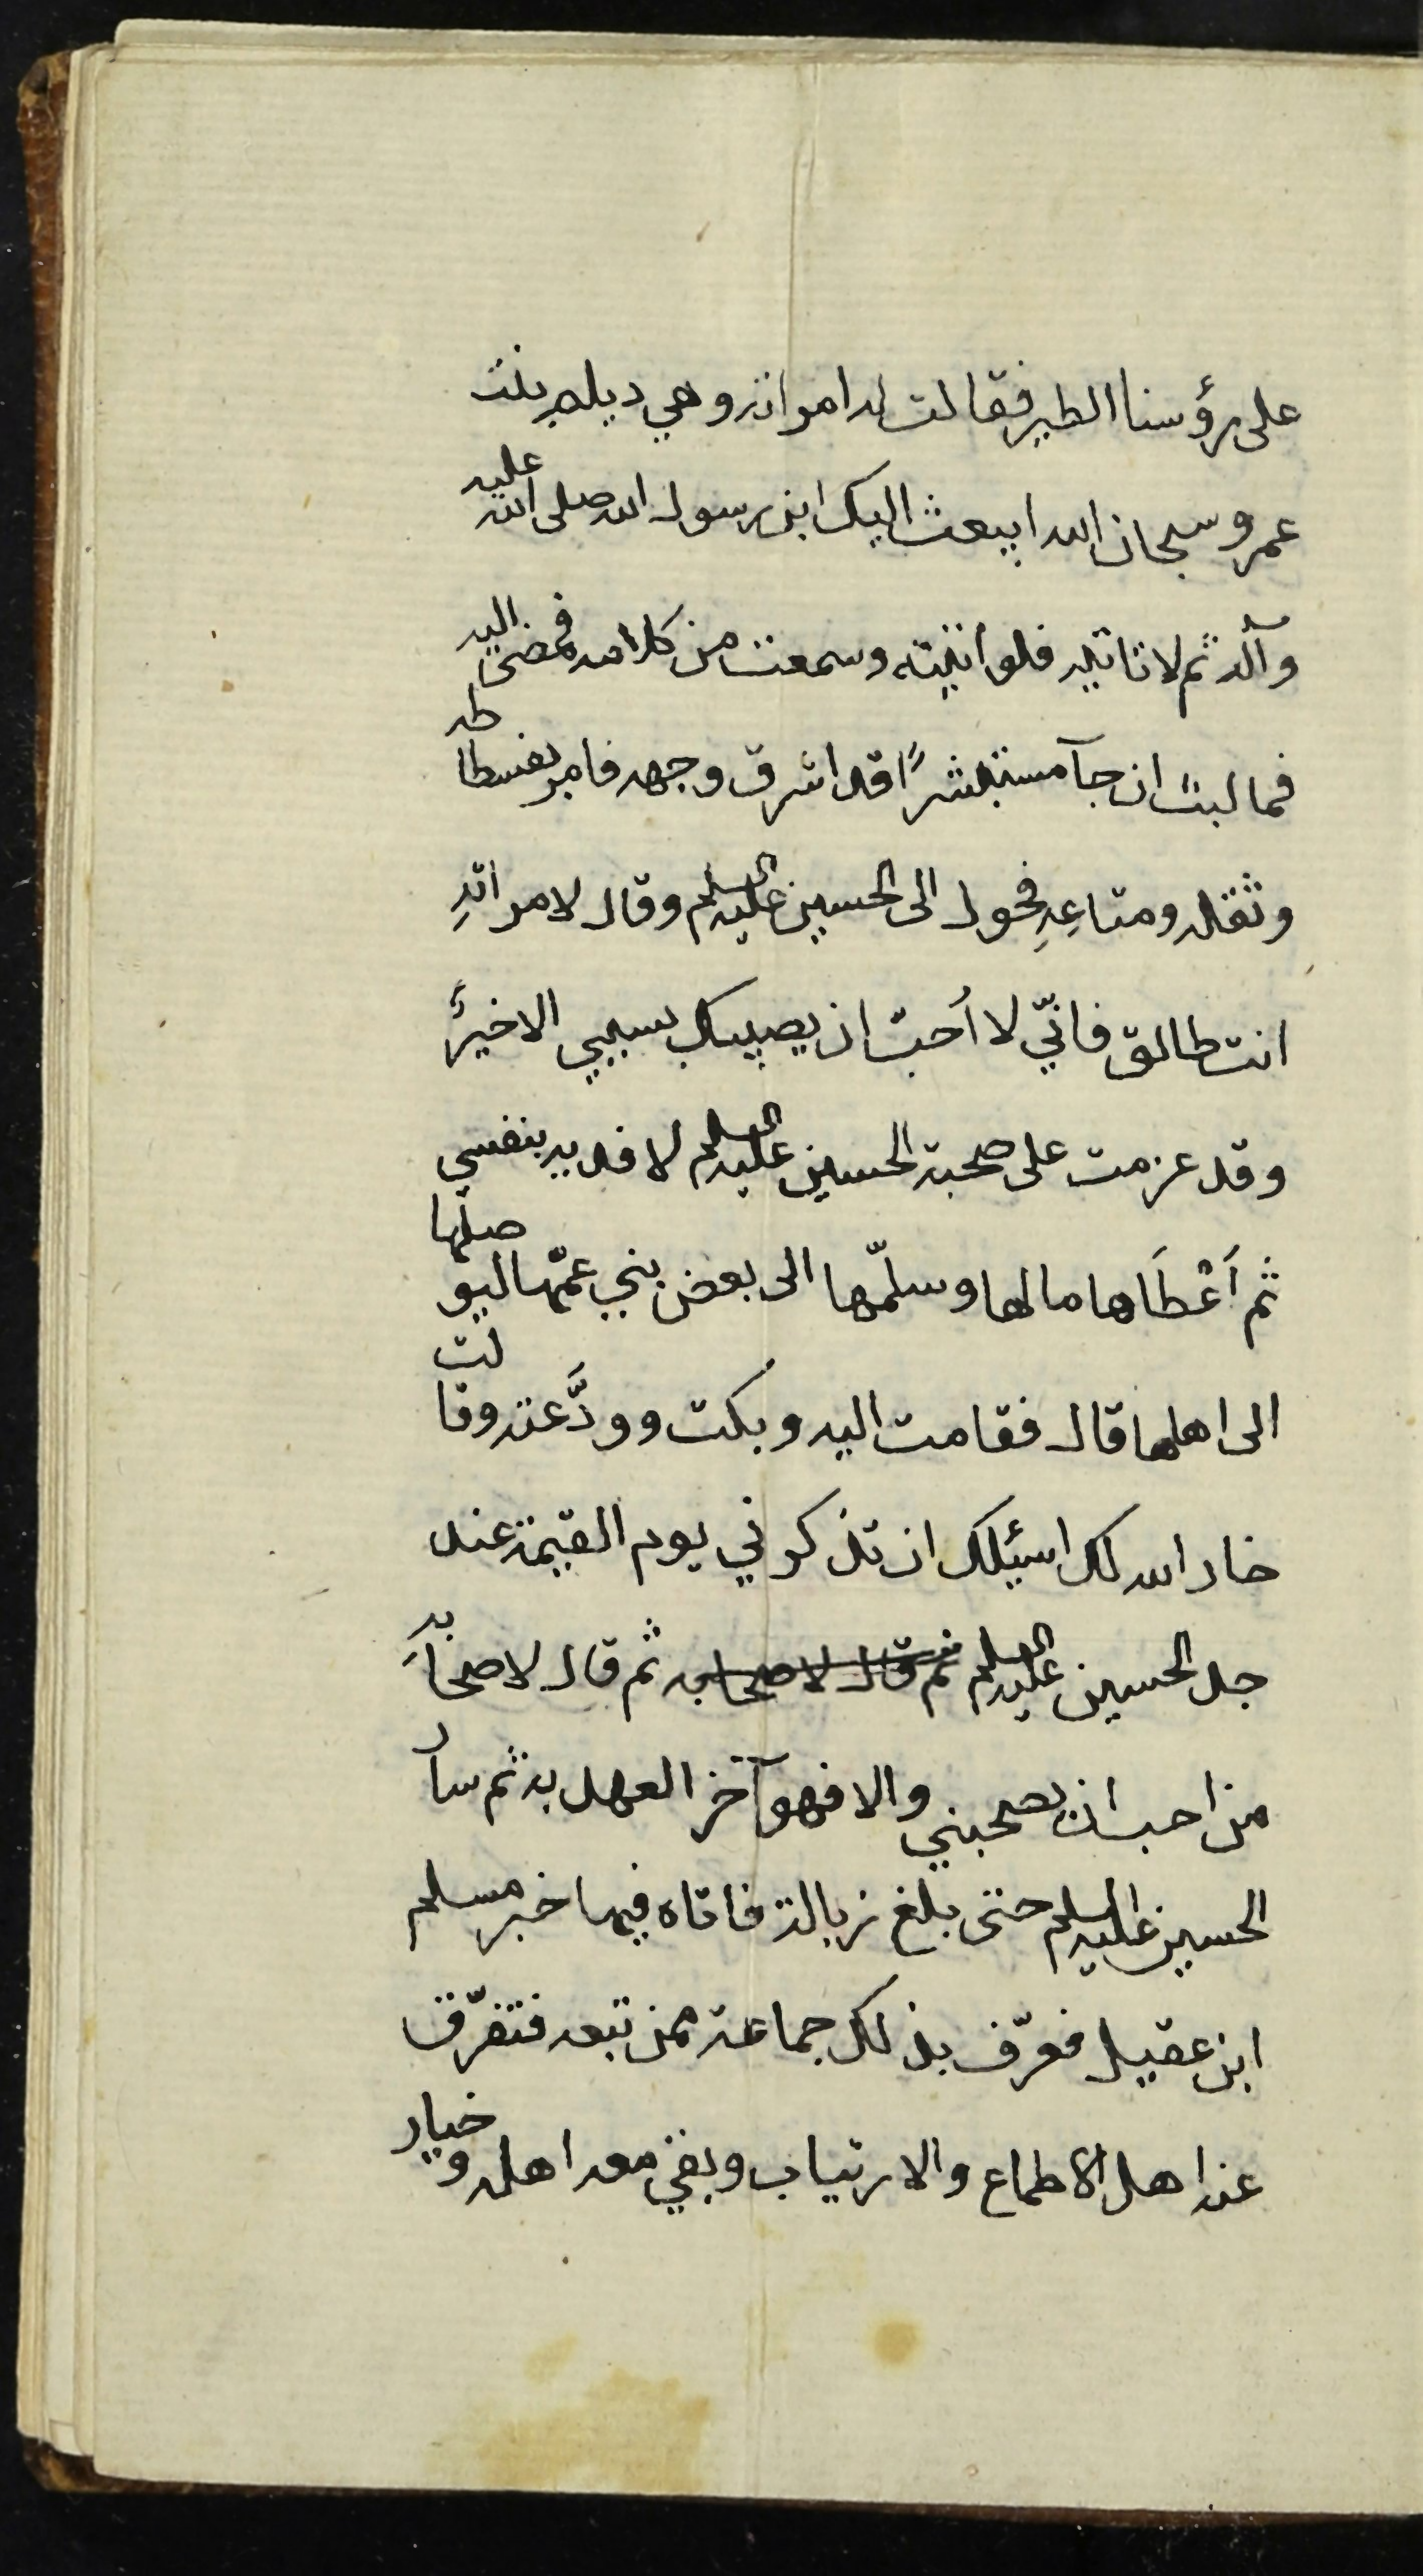 على رؤسنا الطير فقالت له امرأته وهي ديلم بنت
عمرو سبحان الله ايبعث اليك ابن رسول الله صلى الله عليه
وآله ثم لا تاتيه فلو اتيته وسمعت من كلامه فمضى اليه
فما لبث ان جآء مستبشرًا قد اشرق وجهه فامر بفسطاطه
وثقله ومتاعِهِ فحول الى الحسين عليه السلم وقال لامراتهِ
انت طالق فانّي لا أحبّ ان يصيبك بسببي الا خيرٌ
وقد عزمت على صحبة الحسين عليه السلم لافديه بنفسي
ثم اَعْطَاها مالها وسلّمها الى بعض بني عمّها ليوصلها
الى اهلها قال فقامت اليه وبكت وودَّعته وقالت
خار الله لك اسئلك ان تذكرني يوم القيمة عند
جد الحسين عليه السلم ثم قال لاصحابه ثم قال لاصحَابه
من احب ان يصحبني والا فهو آخر العهد به ثم سار
الحسين عليه السلم حتى بلغ زبالة فاتاه فيها خبر مسلم
ابن عقيل فعرّف بذلك جماعة ممن تبعه فتفرّق
عنه اهل الاطماع والارتياب وبقي معه اهله وخيار